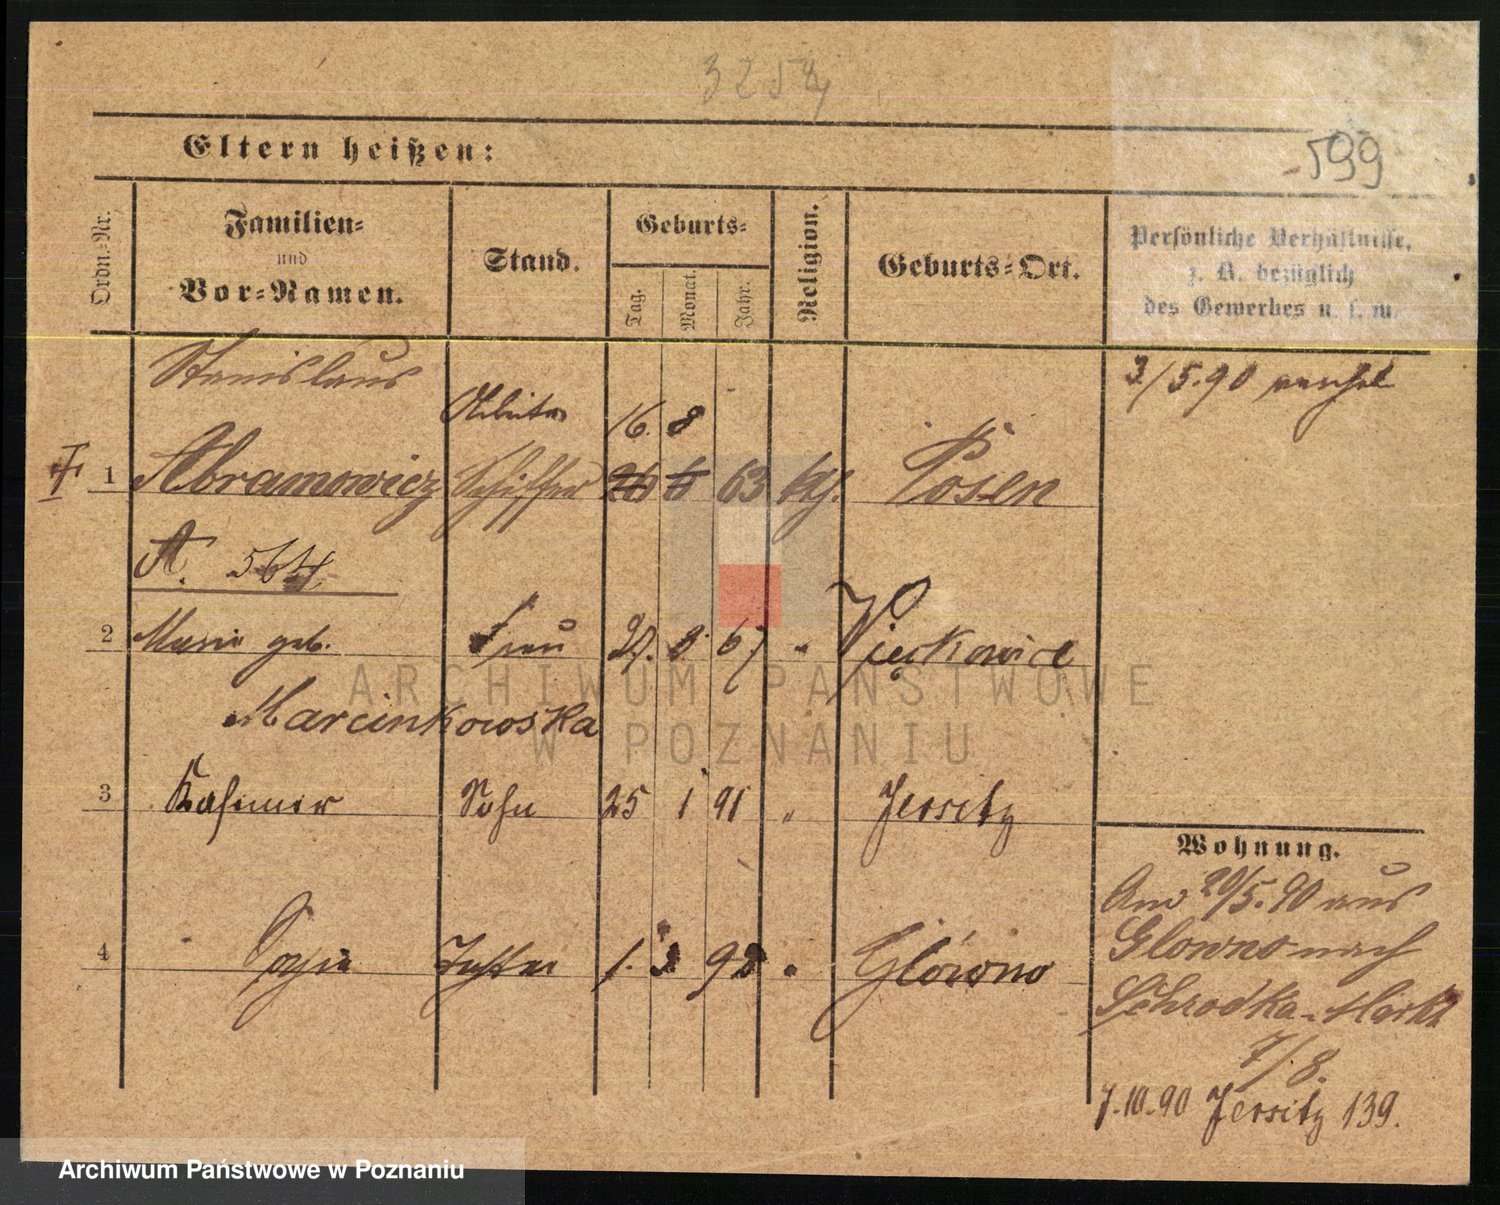 3254
599
Eltern heißen:
Ordn.-Nr.
Familien-
und
Vor-Namen.
Stand.
Geburts-
Tag.
Monat.
Jahr.
Religion.
Geburts-Ort.
Persönliche Verhältnisse,
z. B. bezüglich
des Gewerbes u. s. w.
Stanislaus
3/5.90
Arbeiter 16. 8
1 Abramowicz Schiffer 26 6 63 kth. Posen
A. 564
2 Marie geb. Frau 27. 8. 67 " Więckowice
Marcinkowska
3 Kasimir Sohn 25 1 91 " Jersitz
4 Sofie Tochter 1. 3 92 " Glówno
Wohnung.
Am 20/5.90 aus
Glowno nach
Schrodka-Markt
7/8.
7.10.90 Jersitz 139.
ARCHIWUM PAŃSTWOWE
W POZNANIU
Archiwum Państwowe w Poznaniu